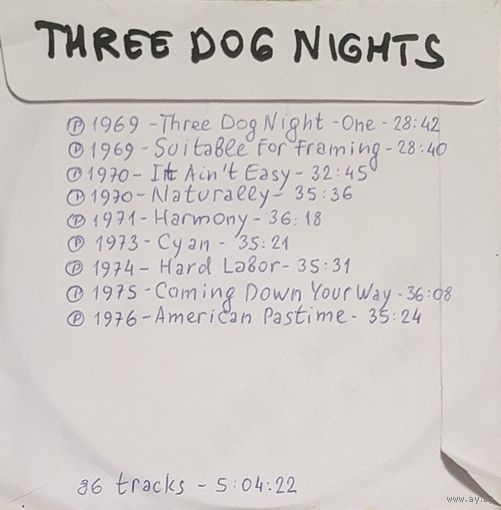 THREE DOG NIGHTS
℗ 1969 - Three Dog Night - One - 28:42
℗ 1969 - Suitable For Framing - 28:40
℗ 1970 - It Ain't Easy - 32:45
℗ 1970 - Naturally - 35:36
℗ 1971 - Harmony - 36:18
℗ 1973 - Cyan - 35:21
℗ 1974 - Hard Labor - 35:31
℗ 1975 - Coming Down Your Way - 36:08
℗ 1976 - American Pastime - 35:24
96 tracks - 5:04:22